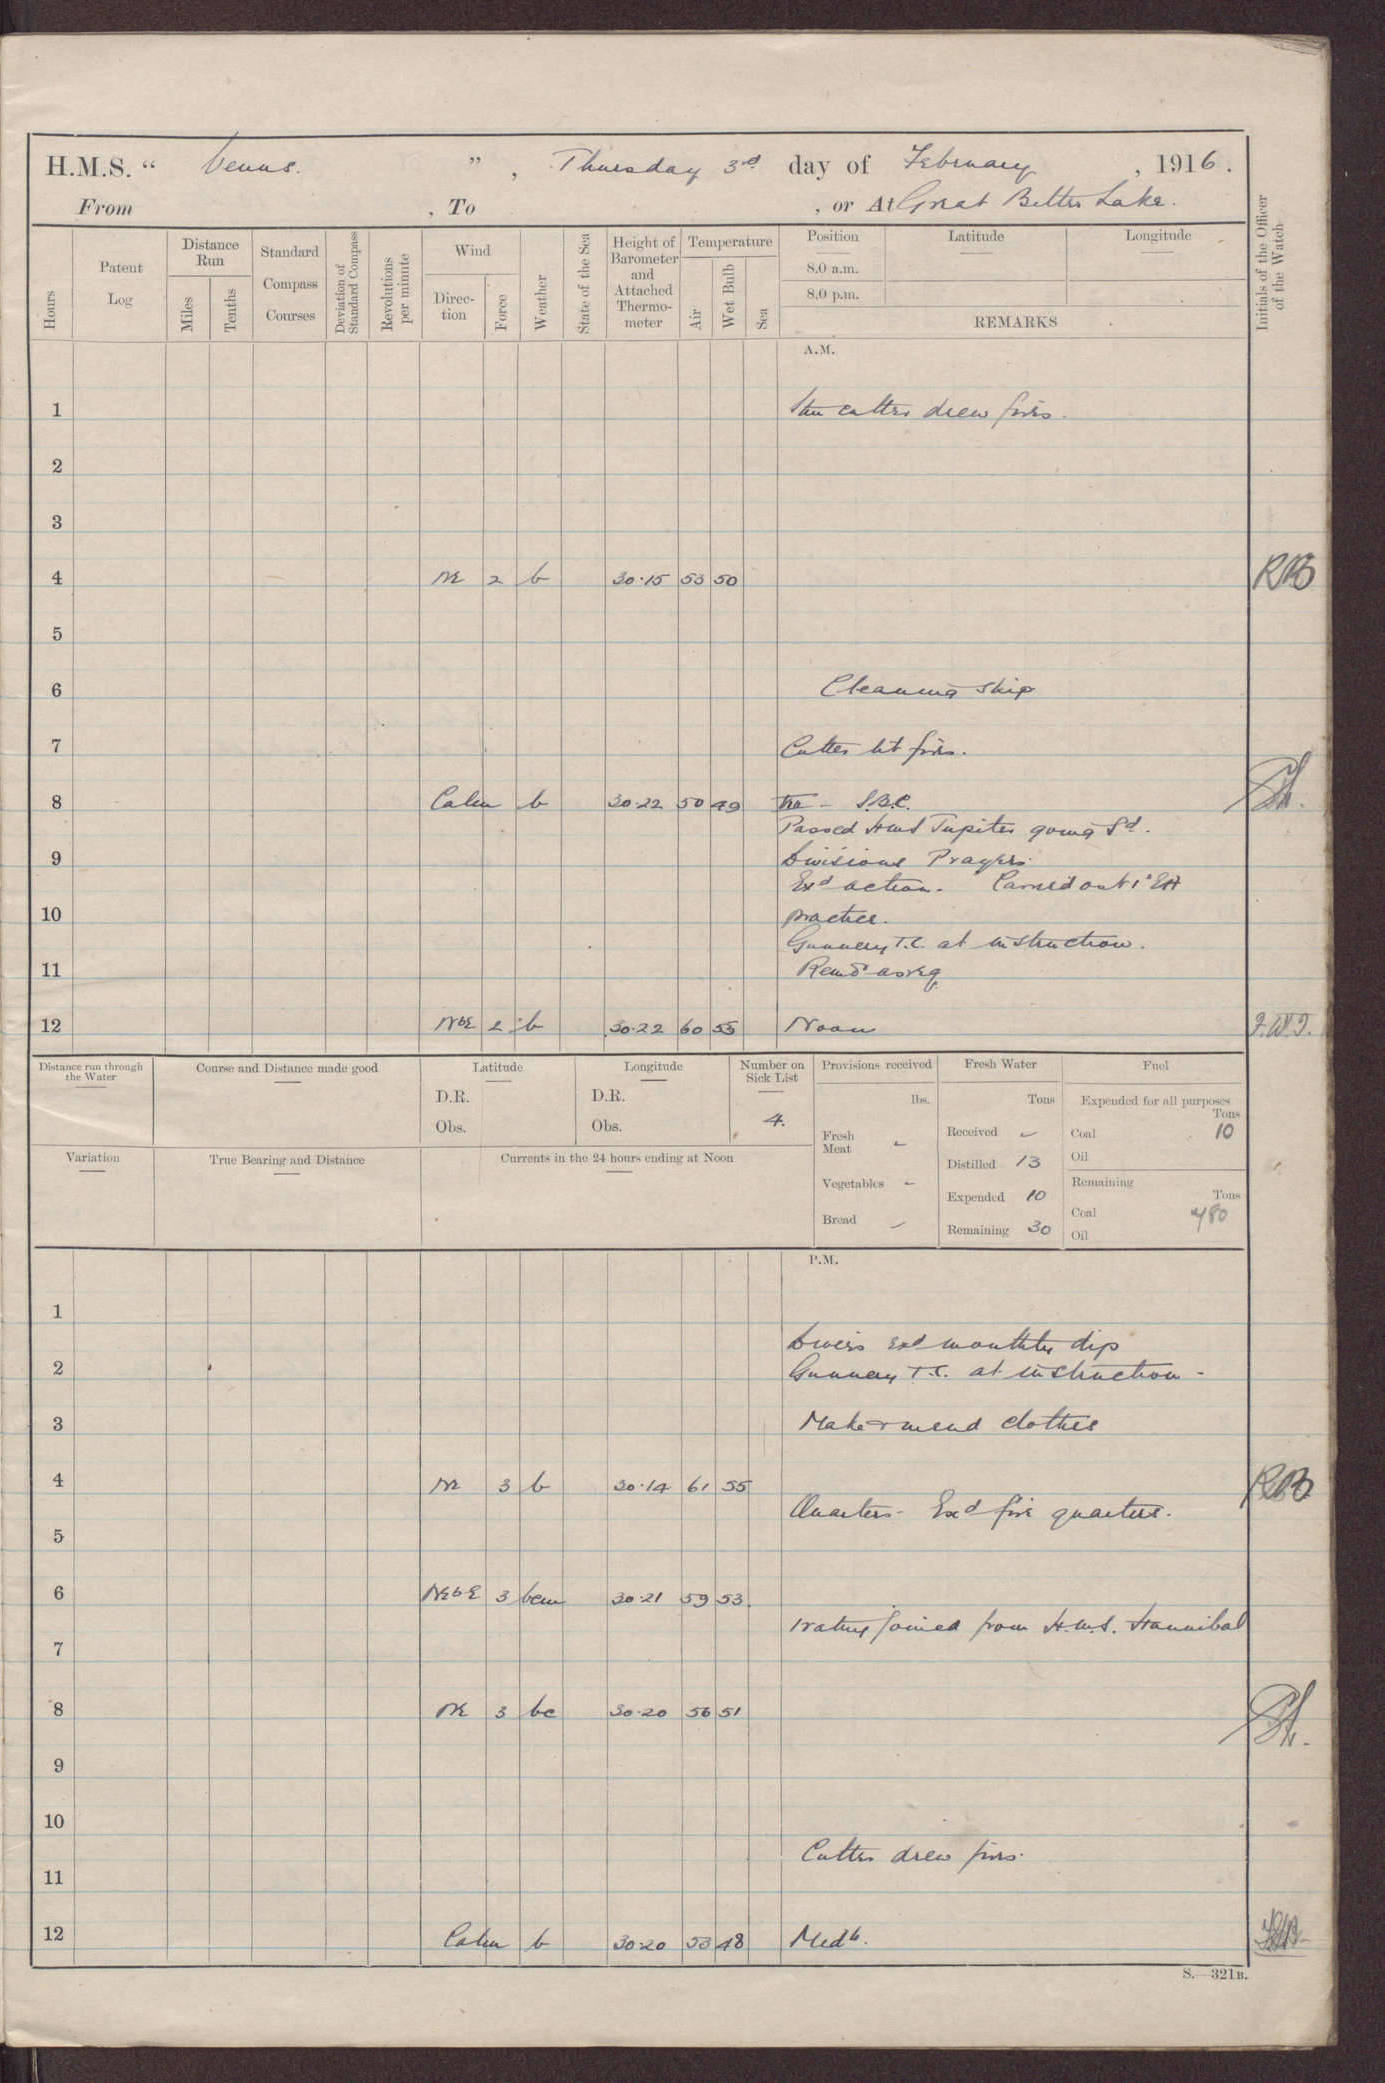 H.M.S. “ Venus. ”, Thursday 3rd day of February, 1916.
From , To , or At Great Bitter Lake.
Hours
Patent Log
Distance Run
Miles
Tenths
Standard Compass Courses
Deviation of Standard Compass
Revolutions per minute
Wind
Direction
Force
Weather
State of the Sea
Height of Barometer and Attached Thermometer
Temperature
Air
Wet Bulb
Sea
Position
Latitude
Longitude
8.0 a.m.
8.0 p.m.
REMARKS
Initials of the Officer of the Watch
A.M.
1 Stm cutter drew fires.
2
3
4 NE 2 b 30.15 53 50
5
6 Cleaning ship
7 Cutter lit fires.
8 Calm b 30.22 50 49 S.B.C.
Passed HMS Jupiter going Sd.
9 Divisions Prayers.
Exd action. Carried out 1" EA
10 practice.
Gunnery T.C. at instruction.
11 Remdr as req
12 NbE 2 b 30.22 60 55 Noon J.W.J.
Distance run through the Water
Course and Distance made good
Latitude
D.R.
Obs.
Longitude
D.R.
Obs.
Number on Sick List
4.
Provisions received
lbs.
Fresh Meat -
Vegetables -
Bread -
Fresh Water
Tons
Received -
Distilled 13
Expended 10
Remaining 30
Fuel
Expended for all purposes
Tons
Coal 10
Oil
Remaining
Tons
Coal 480
Oil
Variation
True Bearing and Distance
Currents in the 24 hours ending at Noon
P.M.
1
Divers exd monthly dip
2 Gunnery T.C. at instruction -
3 Make & mend clothes
4 NE 3 b 30.14 61 55
Quarters - Exd fire quarters.
5
6 NEbE 3 bcm 30.21 59 53
1 rating joined from H.M.S. Hannibal
7
8 NE 3 bc 30.20 56 51
9
10
Cutter drew fires.
11
12 Calm b 30.20 53 48 Midt.
S.—321B.